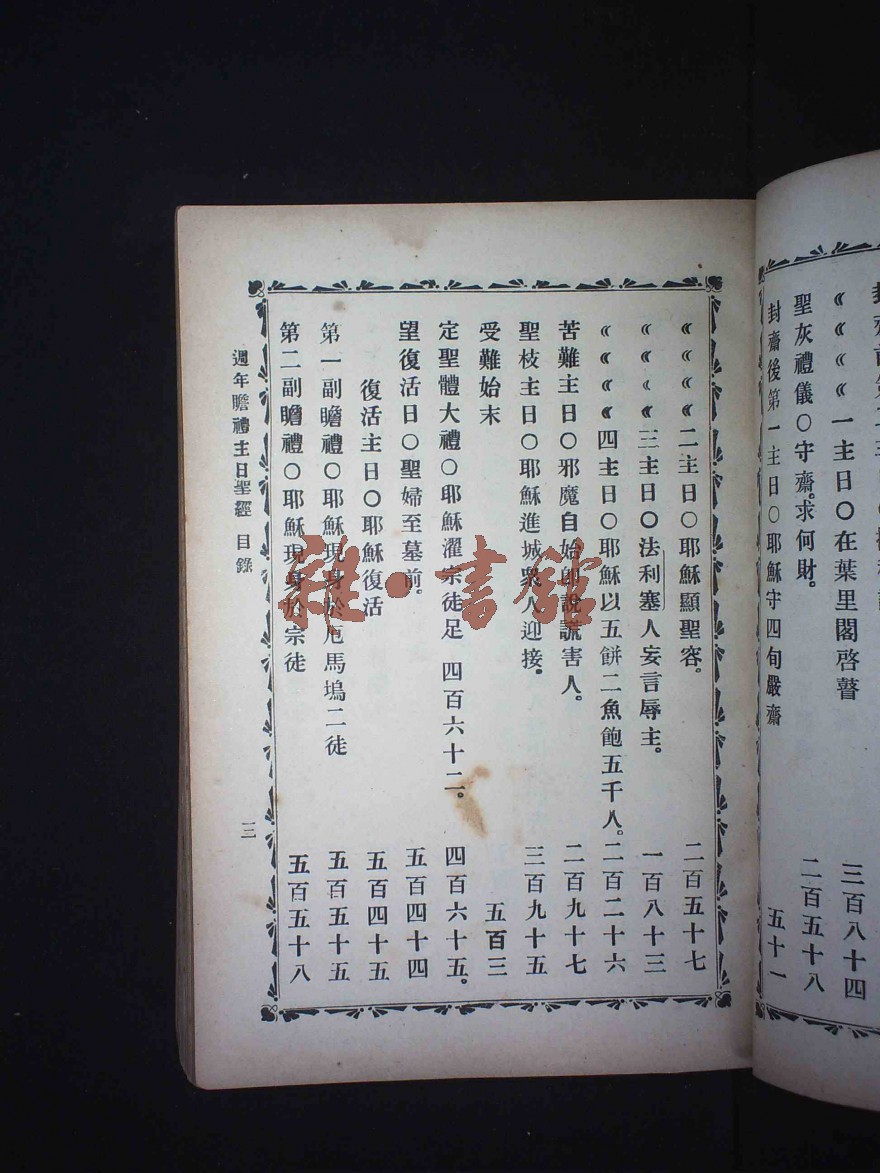 《 《 《 《 一主日〇在葉里閣啓瞽 三百八十四
聖灰禮儀〇守齋。求何財。 二百五十八
封齋後第一主日〇耶穌守四旬嚴齋 五十一
《 《 《 《 二主日〇耶穌顯聖容。 二百五十七
《 《 《 《 三主日〇法利塞人妄言辱主。 一百八十三
《 《 《 《 四主日〇耶穌以五餅二魚飽五千人。 二百二十六
苦難主日〇邪魔自始卽說謊害人。 二百九十七
聖枝主日〇耶穌進城衆人迎接。 三百九十五
受難始末 五百三
定聖體大禮〇耶穌濯宗徒足 四百六十二。 四百六十五。
望復活日〇聖婦至墓前。 五百四十四
復活主日〇耶穌復活 五百四十五
第一副瞻禮〇耶穌現身於厄馬塢二徒 五百五十五
第二副瞻禮〇耶穌現身於宗徒 五百五十八
週年瞻禮主日聖經 目錄 三
雜·書館